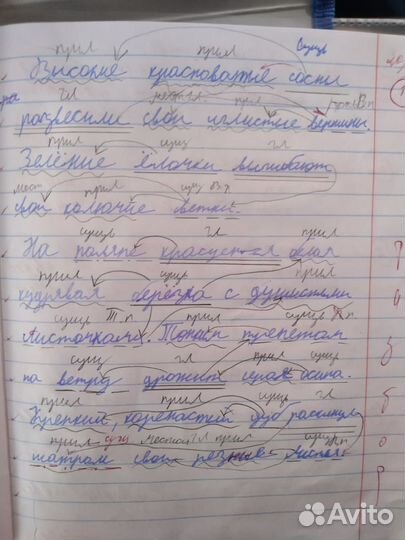 прил прил сущ
Высокие красноватые сосны
гл мест прил В.п
развесили свои иглистые вершины.
прил сущ гл
Зелёные ёлочки выгибают
мест прил сущ В.п
свои колючие ветки.
сущ гл прил
На поляне красуется белая
прил сущ прил
кудрявая берёзка с душистыми
сущ Т.п прил сущ
листочками. Тонким трепетом
сущ гл прил сущ
на ветру дрожит серая осина.
прил прил сущ гл
Крепкий, коренастый дуб раскинул
прил сущ мест прил сущ
шатром свои резные
Avito